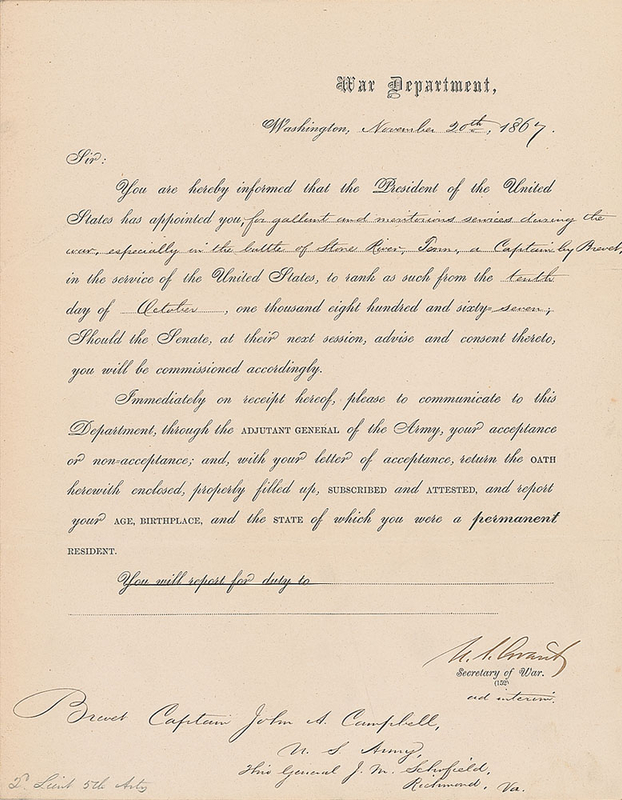 War Department,
Washington, November 20th, 1867.
Sir:
You are hereby informed that the President of the United
States has appointed you, for gallant and meritorious services during the
war, especially in the battle of Stone River, Tenn, a Captain by Brevet,
in the service of the United States, to rank as such from the tenth
day of October, one thousand eight hundred and sixty-seven;
Should the Senate, at their next session, advise and consent thereto,
you will be commissioned accordingly.
Immediately on receipt hereof, please to communicate to this
Department, through the ADJUTANT GENERAL of the Army, your acceptance
or non-acceptance; and, with your letter of acceptance, return the OATH
herewith enclosed, properly filled up, SUBSCRIBED and ATTESTED, and report
your AGE, BIRTHPLACE, and the STATE of which you were a permanent
RESIDENT.
You will report for duty to
U. S. Grant
Secretary of War.
(152)
ad interim.
Brevet Captain John A. Campbell,
U S Army,
Thro General J. M. Schofield,
Richmond, Va.
2d Lieut 5th Arty